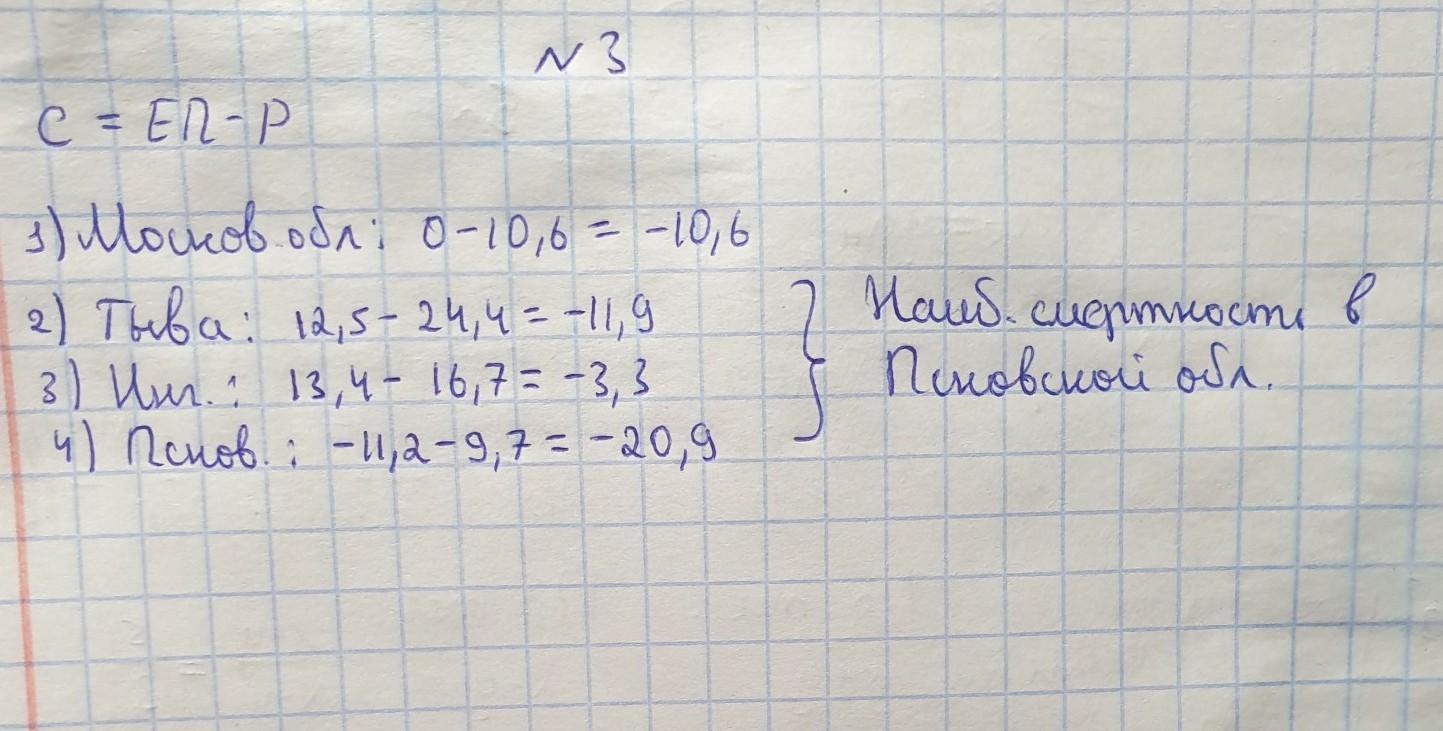 № 3
С = ЕП - Р
1) Москов. обл: 0 - 10,6 = -10,6
2) Тыва: 12,5 - 24,4 = -11,9
3) Инг.: 13,4 - 16,7 = -3,3
4) Псков.: -11,2 - 9,7 = -20,9
} Наиб. смертность в
Псковской обл.